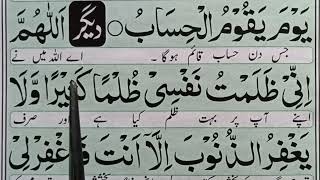 يَوْمَ يَقُوْمُ الْحِسَابُ ○ دیگر اَللّٰهُمَّ
جس دن حساب قائم ہوگا ۔ اے اللہ میں نے
اِنِّیْ ظَلَمْتُ نَفْسِیْ ظُلْمًا وَّلَا
اپنے آپ پر بہت ظلم کیا ہے اور صرف
يَغْفِرُ الذُّنُوْبَ اِلَّا اَنْتَ فَاغْفِرْلِیْ